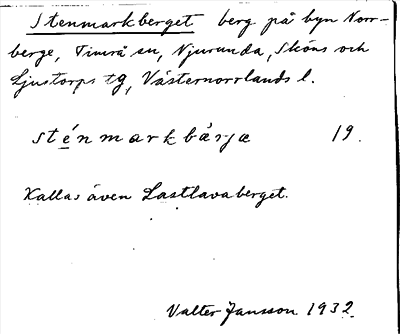 Stenmarkberget berg på byn Norr-
berge, Timrå sn, Njurunda, Sköns och
Ljustorps tg, Västernorrlands l.
sténmarkbärjæ 19.
Kallas även Lastlavaberget.
Valter Jansson 1932